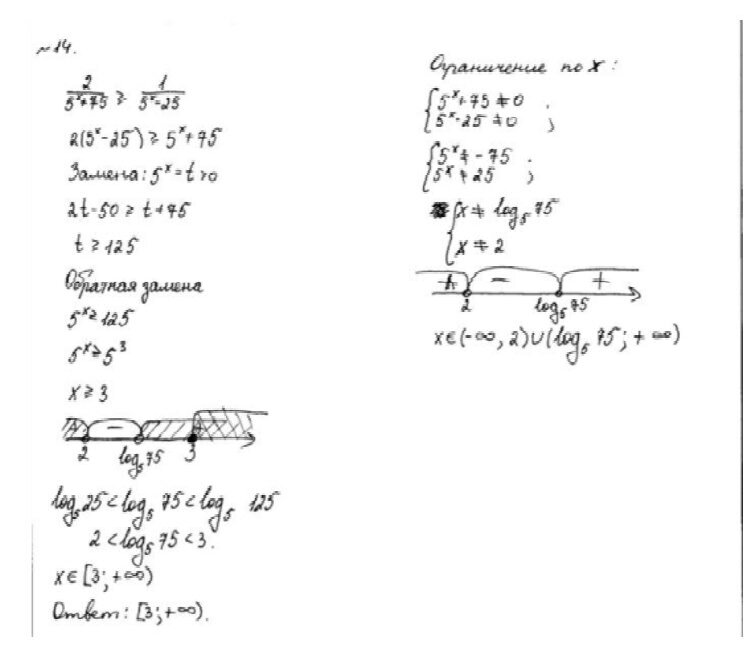 №14.
2/(5^x+75) ≥ 1/(5^x-25)
2(5^x-25) ≥ 5^x+75
Замена: 5^x=t>0
2t-50 ≥ t+75
t ≥ 125
Обратная замена
5^x≥125
5^x≥5^3
x≥3
+ -
2 log_5 75 3
log_5 25 < log_5 75 < log_5 125
2 < log_5 75 < 3.
x∈[3;+∞)
Ответ: [3;+∞).
Ограничение по x:
{5^x+75≠0
5^x-25≠0 ;
{5^x≠-75
5^x≠25 ;
{x≠log_5 75
x≠2
+ - +
2 log_5 75
x∈(-∞, 2)∪(log_5 75; +∞)